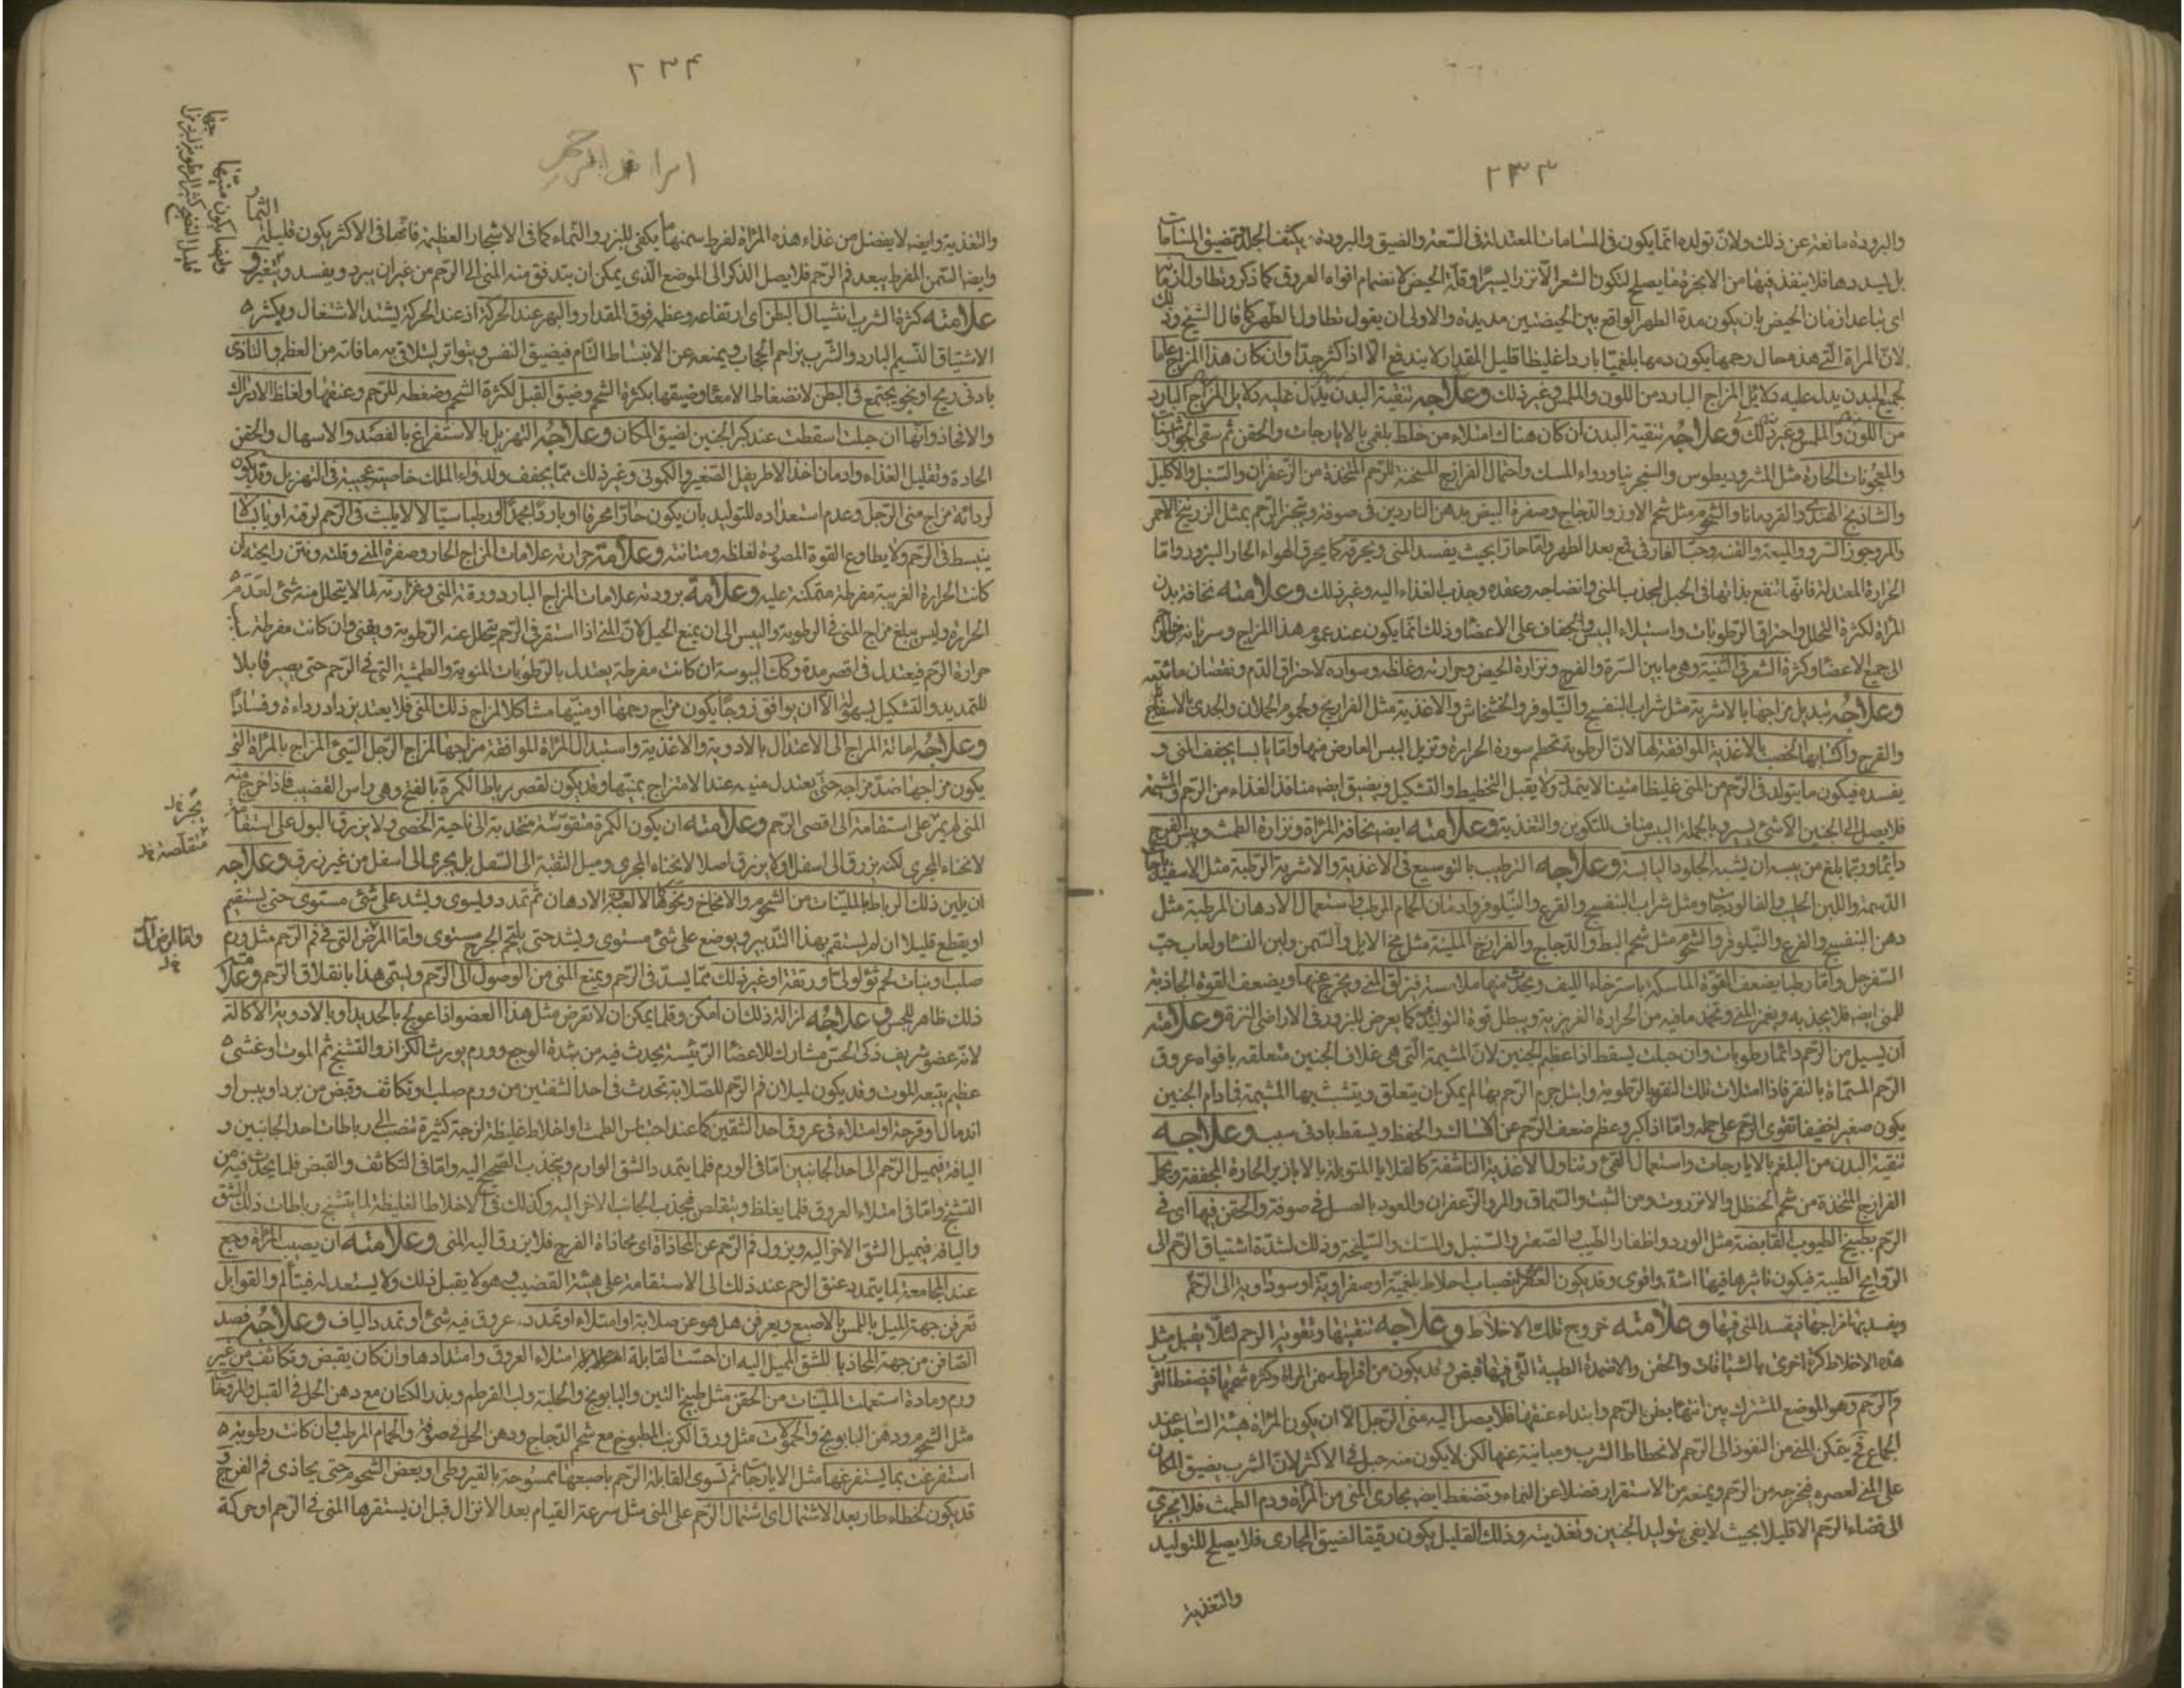 ٢٣٣
والبرودة مانعة عن ذلك ولان تولده انما يكون فى المسامات المعتدلة فى السعة والضيق والبرودة يكثف الجلد وتضيق المسامات
بل يسددها فلا ينفذ فيها من الابخرة ما يصلح لتكون الشعر الا نزرا يسيرا وقلة الحيض لانضمام افواه العروق كما ذكر وتطاول ازمانها
اى تباعد ازمان الحيض بان يكون مدة الطهر الواقع بين الحيضتين مديدة والاولى ان يقول تطاول الطهر كما قال الشيخ وذلك
لان المراة التى هذه حال رحمها يكون دمها بلغميا باردا غليظا قليل المقدار لا يندفع الا اذا كثر جدا وان كان هذا المزاج عاما
لجميع البدن يدل عليه دلائل المزاج البارد من اللون والملمس وغير ذلك وعلاجه تنقية البدن يدل عليه دلايل المزاج البارد
من اللون والملمس وغير ذلك وعلاجه تنقية البدن ان كان هناك امتلاء من خلط بلغمى بالايارجات والحقن ثم سقى
والمعجونات الحارة مثل المثروديطوس والسجرنيا ودواء المسك واحتمال الفرازج المسخنة للرحم المتخذة من الزعفران والسنبل والاكليل
والساذج الهندى والقردمانا والشحوم مثل شحم الاوز والدجاج وصفرة البيض بدهن الناردين فى صوفة وتبخر الرحم بمثل الزرنيخ الاحمر
والمر وجوز السرو والميعة والقنه وحب الغار فى قمع بعد الطهر واما حارا بحيث يفسد المنى ويحرقه كما يحرق الهواء الحار البزور واما
الحرارة المعتدلة فانها تنفع بذاتها فى الحبل لجذب المنى وانضاجه وعقده وجذب الغذاء اليه وغير ذلك وعلامته نحافة بدن
المراة لكثرة التحلل واحتراق الرطوبات واستيلاء اليبس والجفاف على الاعضاء وذلك انما يكون عند عموم هذا المزاج وسريانه
الى جميع الاعضاء وكثرة الشعر فى الثنية وهى ما بين السرة والفرج ونزارة الحيض وحرارته وغلظه وسواده لاحتراق الدم ونقصان مائيته
وعلاجه تبديل مزاجها بالاشربة مثل شراب البنفسج والنيلوفر والخشخاش والاغذية مثل الفراريج ولحوم الحملان والجدى بالاسفاناخ
والقرع واكسابها الخصب بالاغذية الموافقة لها لان الرطوبة تحطم سورة الحرارة وتزيل اليبس العارض منها واما يابسا يجفف المنى و
يفسده فيكون ما يتولد فى الرحم من المنى غليظا متينا لا يتمدد ولا يقبل التخطيط والتشكيل ويضيق ايضا منافذ الغذاء من الرحم والمشيمة
فلا يصل الى الجنين الا شئ يسير وبالجملة اليبس مناف للتكوين والتغذية وعلامته ايضا نحافة المراة ونزارة الطمث ويبس الفرج
دائما وربما بلغ من يبسه ان يشبه الجلود اليابسة وعلاجه الترطيب بالتوسيع فى الاغذية والاشربة الرطبة مثل
الدسمة واللبن الحليب والفالوذجات ومثل شراب البنفسج والقرع والنيلوفر وادمان الحمام الرطب واستعمال الادهان المرطبة مثل
دهن البنفسج والقرع والنيلوفر والشحوم مثل شحم البط والدجاج والفرازج الملينة مثل مخ الايل والسمن ولبن النساء ولعاب حب
السفرجل واما رطبا يضعف القوة الماسكة باسترخاء الليف ويحدث منها ملاسة فيزلق المنى ويخرج عنها ويضعف القوة الجاذبة
للمنى ايضا فلا يجذبه ويغمر المنى ويخمد ما فيه من الحرارة الغريزية ويبطل قوة التوليد كما يعرض للبزور فى الاراضى النزة وعلامته
ان يسيل من الرحم دائما رطوبات وان حبلت يسقط اذا عظم الجنين لان المشيمة التى هى غلاف الجنين متعلقة بافواه عروق
الرحم المسماة بالنقر فاذا امتلات تلك النقر بالرطوبة وابتل جرم الرحم بها لم يمكن ان يتعلق ويتشبث بها المشيمة فما دام الجنين
يكون صغيرا خفيفا تقوى الرحم على حمله واما اذا كبر وعظم ضعف الرحم عن الامساك والحفظ ويسقط بادنى سبب وعلاجه
تنقية البدن من البلغم بالايارجات واستعمال القئ وتناول الاغذية الناشفة كالقلايا المتوبلة بالابازير الحارة المجففة
الفرازج المتخذة من شحم الحنظل والانزروت ومن الشب والسماق والمر والزعفران والعود بالعسل فى صوفة والحقن فيها اى فى
الرحم بطبيخ الطيوب القابضة مثل الورد واظفار الطيب والصعتر والسنبل والمسك والسليخة وذلك لشدة اشتياق الرحم الى
الروايح الطيبة فيكون تاثيرها فيها اشد واقوى وقد يكون العقر لانصباب اخلاط بلغمية او صفراوية او سوداوية الى الرحم
ويفسد بها مزاجها فيفسد المنى فيها وعلامته خروج تلك الاخلاط وعلاجه تنقيتها وتقوية الرحم لئلا يقبل مثل
هذه الاخلاط كرة اخرى بالشيافات والحقن والاضمدة الطيبة التى فيها قبض وقد يكون من افراط سمن المراة وكثرة شحمها فيضغط الثرب
فم الرحم وهو الموضع المشترك بين انتهاء بطن الرحم وابتداء عنقها فلا يصل اليه منى الرجل الا ان يكون المراة هيئة الساجد عند
الجماع فح يتمكن المنى من النفوذ الى الرحم لانحطاط الثرب ومباينة عنها لكن لا يكون منه حبل فى الاكثر لان الثرب يضيق المكان
على المنى لعصره فيخرجه من الرحم ويمنعه من الاستقرار فضلا عن النماء وتضغط ايضا مجارى المنى من المراة ودم الطمث فلا يجرى
الى فضاء الرحم الا قليلا بحيث لا يفى بتوليد الجنين وتغذيته وذلك القليل يكون رقيقا لضيق المجارى فلا يصلح للتوليد
والتغذية
٢٣٤
والتغذية وايضا لا يفضل من غذاء هذه المراة لفرط سمنها ما يكفى للبزر والنماء كما فى الاشجار العظيمة فانها فى الاكثر يكون قليلة الثمار
وايضا السمن المفرط يبعد فم الرحم فلا يصل الذكر الى الموضع الذى يمكن ان يتدفق منه المنى الى الرحم من غير ان يبرد ويفسد ويتغير و
علامته كثرة الشرب انشيال البطن اى ارتفاعه وعظمه فوق المقدار والبهر عند الحركة اذ عند الحركة يشتد الاشتعال ويكثر
الاشتياق النسيم البارد والثرب يزاحم الحجاب ويمنعه عن الانبساط التام فيضيق النفس ويتواتر ليتلافى به ما فاته من العظم والتاذى
بادنى ريح او نجو يجتمع فى البطن لانضغاط الامعاء وضيقها بكثرة الشحم وضيق القبل لكثرة الشحم وضغطه للرحم وعنقها ولغلظ الاوراك
والافخاذ وانها ان حبلت اسقطت عند كبر الجنين لضيق المكان وعلاجه التهزيل بالاستفراغ بالفصد والاسهال والحقن
الحادة وتقليل الغذاء وادمان اخذ الاطريفل الصغير والكمونى وغير ذلك مما يجفف ولدواء الملك خاصية عجيبة فى التهزيل وقد يكون
لرداءة مزاج منى الرجل وعدم استعداده للتوليد بان يكون حارا محرقا او باردا مجمدا او رطبا سيالا لا يلبث فى الرحم لرقته او يابسا لا
ينبسط فى الرحم ولا يطاوع القوة المصورة لغلظه ومتانته وعلامة حرارته علامات المزاج الحار وصفرة المنى وقلته ونتن رايحته ان
كانت الحرارة الغريبة مفرطة متمكنة عليه وعلامة برودته علامات المزاج البارد ورقة المنى وغزارته لما لا يتحلل منه شئ لعدم
الحرارة وليس يبلغ مزاج المنى فى الرطوبة واليبس الى ان يمنع الحبل لان المنى اذا استقر فى الرحم يتحلل عنه الرطوبة ويفنى وان كانت مفرطة
حرارة الرحم فيعتدل فى اقصر مدة وكك اليبوسة ان كانت مفرطة يعتدل بالرطوبات المنوية والطمثية التى فى الرحم حتى يصير قابلا
للتمديد والتشكيل بسهولة الا ان يوافق زوجا يكون مزاج رحمها او منيها مشاكلا لمزاج ذلك المنى فلا يعتد بل يزداد رداءة وفسادا
وعلاجه امالة المزاج الى الاعتدال بالادوية والاغذية واستبدال المراة الموافقة مزاجها لمزاج الرجل السيئ المزاج بالمراة التى
يكون مزاجها ضد مزاجه حتى يعتدل منيه عند الامتزاج بمنيها وقد يكون لقصر رباط الكمرة بالفتح وهى راس القضيب فاذا خرج منه
المنى لم يمر على استقامة الى اقصى الرحم وعلامته ان يكون الكمرة متقوسة منجذبة الى ناحية الخصى ولا يزرق البول على استقامة
لانحناء المجرى لكنه يزرق الى اسفل او لا يزرق اصلا لانحناء المجرى وميل الثقبة الى السفل بل يجرى الى اسفل من غير زرق وعلاجه
ان يلين ذلك الرباط بالملينات من الشحوم والامخاخ ونحوها الالعبة والادهان ثم تمدد ويسوى ويشد على شئ مستوى حتى يستقيم
او يقطع قليلا ان لم يستقم بهذا التدبير ويوضع على شئ مستوى ويشد حتى يلتحم الجرح مستوى واما المرض التى فى فم الرحم مثل ورم
صلب او نبات لحم ثؤلولى او رتقة او غير ذلك مما يسد فم الرحم ويمنع المنى من الوصول الى الرحم ويسمى هذا بانغلاق الرحم وعلامته
ذلك ظاهر للحس وعلاجه ازالة ذلك ان امكن وقلما يمكن ان لا تمرض مثل هذا العضو اذا عولج بالحديد او بالادوية الاكالة
لانه عضو شريف ذكى الحس مشارك للاعضاء الرئيسة يحدث فيه من شدة الوجع وورم يورث الكزاز والتشنج ثم الموت او غشى
عظيم يتبعه الموت وقد يكون لميلان فم الرحم للصلابة تحدث فى احد الشقين من ورم صلب او تكاثف وقبض من برد او يبس او
اندمال او قرحة او امتلاء فى عروق احد الشقين كما عند احتباس الطمث واخلاط غليظة لزجة كثيرة تنصب الى رباطات احد الجانبين و
اليافه فيميل الرحم الى احد الجانبين اما فى الورم فلما يتمدد الشق الوارم ويجذب الصحيح اليه واما فى التكاثف والقبض فلما يحدث فيه من
التشنج واما فى امتلاء العروق فلما يغلظ ويتقلص فيجذب الجانب الاخر اليه وكذلك فى الاخلاط الغليظة لما يتشنج رباطات ذلك الشق
واليافه فيميل الشق الاخر اليه ويزول فم الرحم عن المحاذاة اى محاذاة الفرج فلا يزرق اليه المنى وعلامته ان يصيب المراة وجع
عند المجامعة لما يتمدد عنق الرحم عند ذلك الى الاستقامة على هيئة القضيب وهو لا يقبل ذلك ولا يستعد له فيتالم والقوابل
تعرفن جهة الميل باللمس بالاصبع ويعرفن هل هو عن صلابة او امتلاء او تمدد عروق فيه شئ او تمدد الياف وعلاجه فصد
الصافن من جهة المحاذيا للشق المميل اليه ان احست القابلة امتلاء العروق وامتدادها وان كان يقبض وتكاثف من غير
ورم ومادة استعملت الملينات من الحقن مثل طبيخ التين والبابونج والحلبة ولب القرطم وبذر الكتان مع دهن الحل فى القبل والمروخات
مثل الشحوم ودهن البابونج والحمولات مثل ورق الكرنب المطبوخ مع شحم الدجاج ودهن الحل فى صوفة والحمام المرطب وان كانت رطوبة
استفرغت بما يستفرغها مثل الايارجات ثم تسوى القابلة الرحم باصبعها ممسوحة بالقيروطى او بعض الشحوم حتى يحاذى فم الفرج و
قد يكون لخطاء طار بعد الاشتمال اى اشتمال الرحم على المنى مثل سرعة القيام بعد الانزال قبل ان يستقر ها المنى فى الرحم او حركة